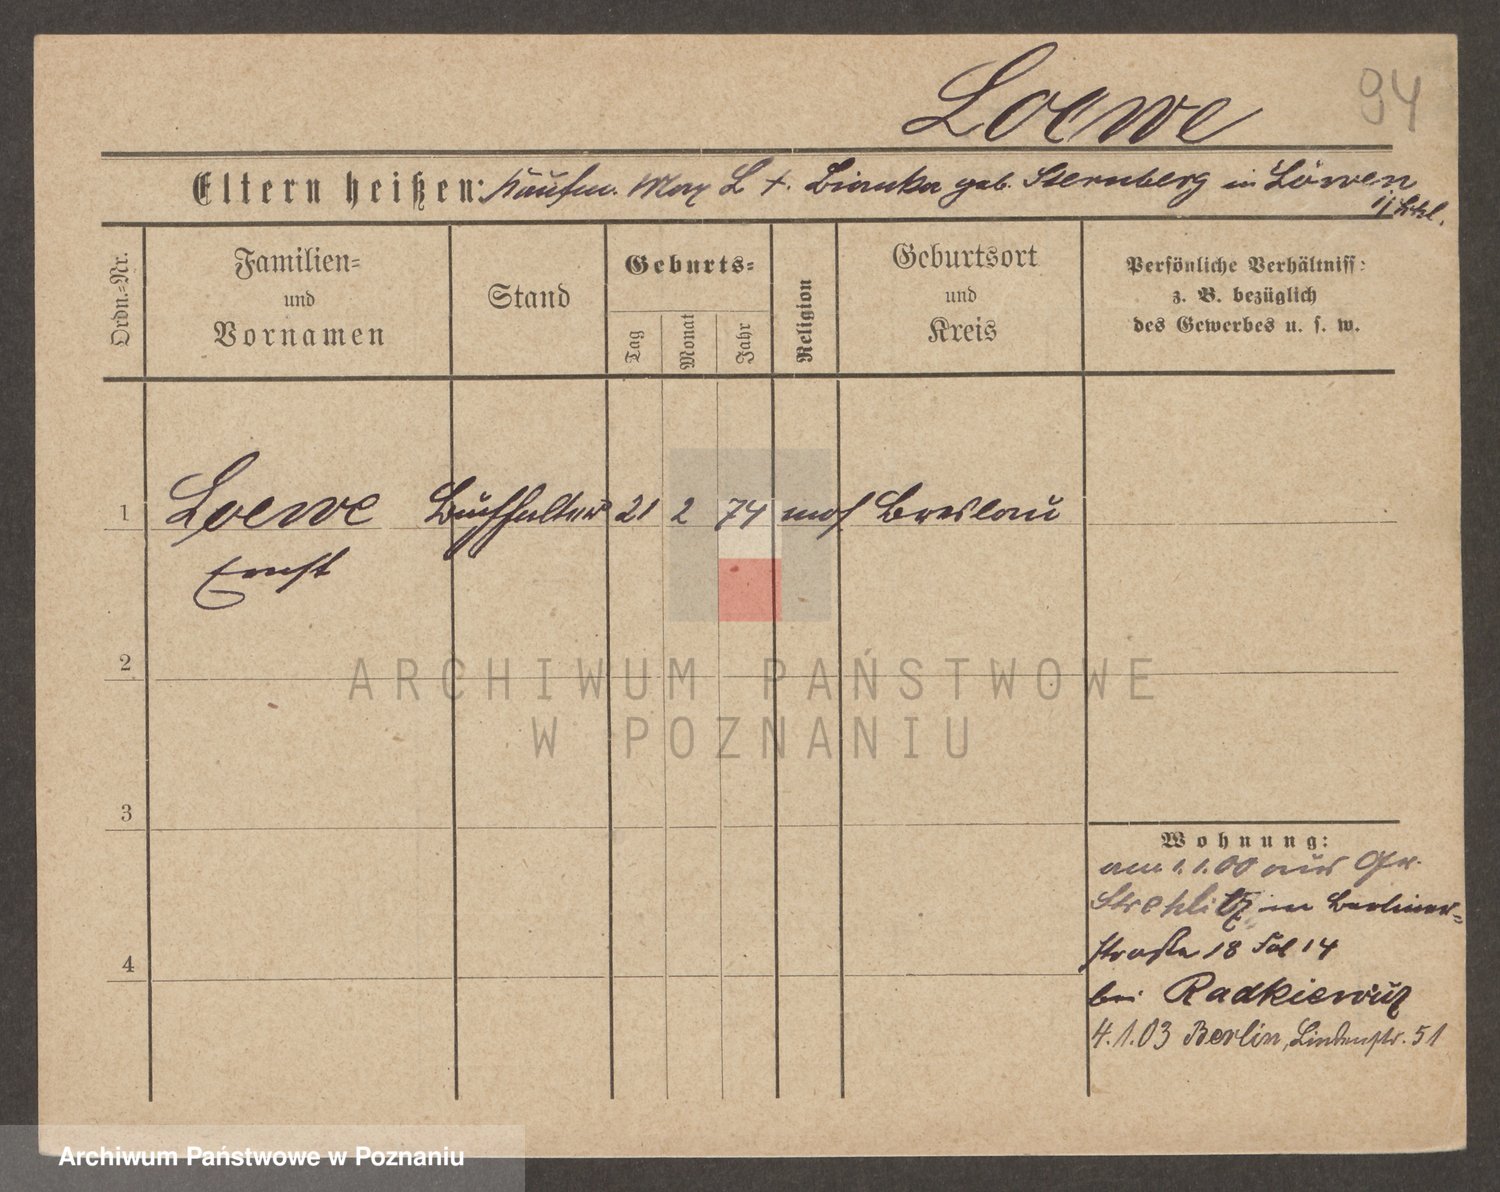 Loewe 94
Eltern heißen: Kaufm. Max L +. Bianka geb. Sternberg in Löwen
Ordn.=Nr.
Familien=
und
Vornamen
Stand
Geburts=
Tag
Monat
Jahr
Religion
Geburtsort
und
Kreis
Persönliche Verhältniss:
z. B. bezüglich
des Gewerbes u. s. w.
1 Loewe Buchhalter 21 2 74 mos Breslau
Ernst
2
ARCHIWUM PAŃSTWOWE
W POZNANIU
3
4
Wohnung:
am 1.1.00 aus Gr.
Strehlitz in Berliner=
straße 18 Fol 14
bei Radkiewicz
4.1.03 Berlin, Lindenstr. 51
Archiwum Państwowe w Poznaniu